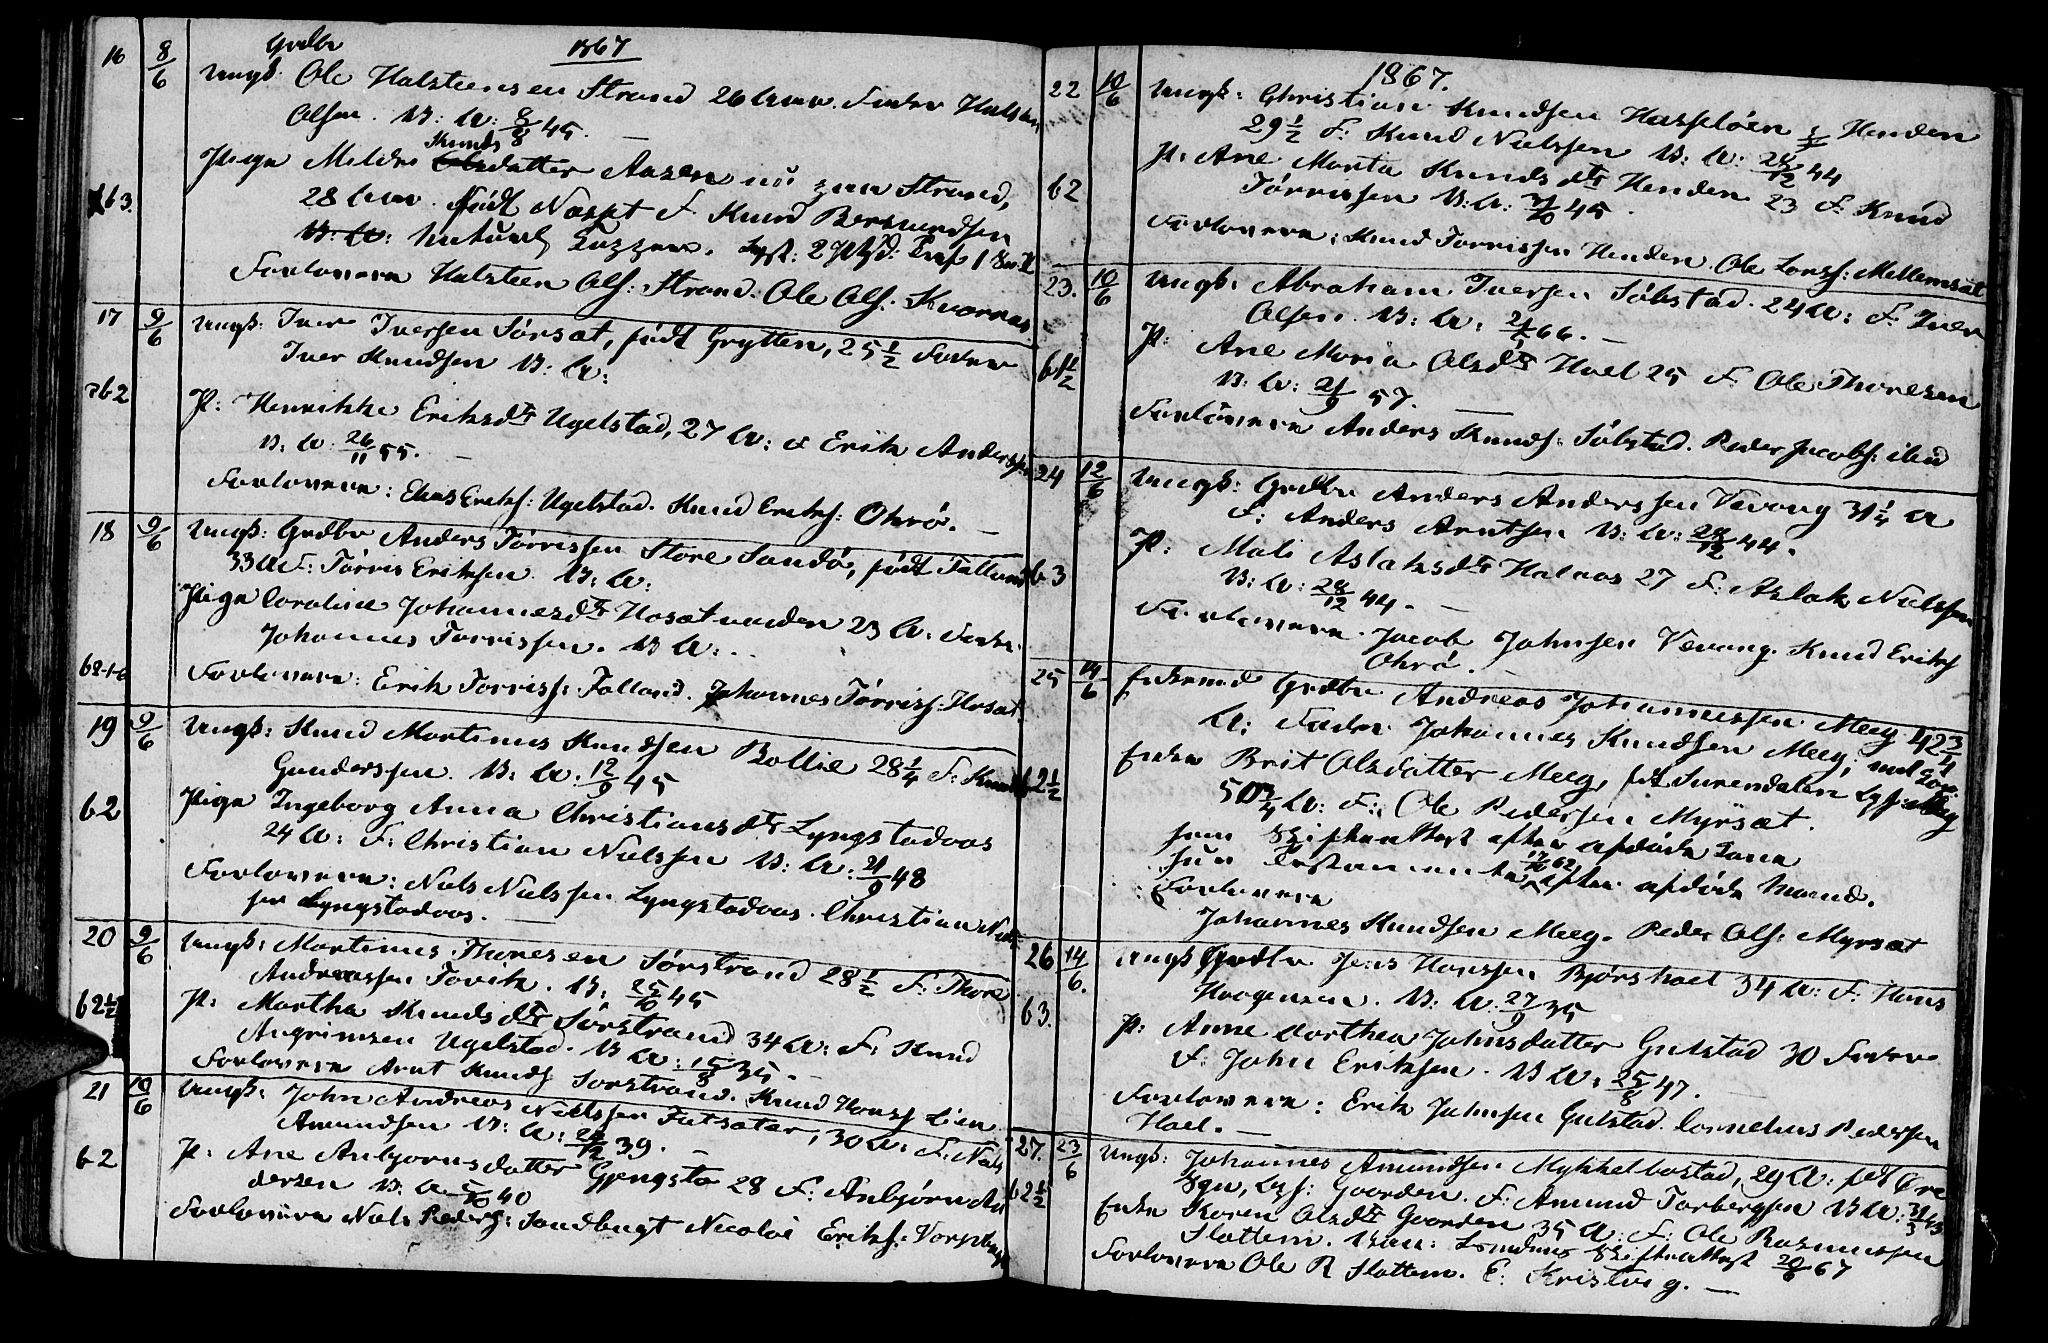 1867
16 8/6 Grdbr
Ungk: Ole Halsteensen Strand 26 Aar. Fader Halsteen
Olsen. V: A: 8/8 45. —
Pige Mildri Knudsdatter Aasen nu paa Strand,
63. 28 Aar. født Nesset F. Knud Berentsen
V: A: Naturl
Forlovere Halsteen Ols: Strand. Ole Ols: Kvernnes
17 9/6 Ungk: Iver Iversen Sørsæt, født Grytten, 25 1/2 Fader
Iver Knudsen V: A:
62 P: Henrikke Eriksdtr Ugelstad, 27 A: F Erik Anderssen
V: A. 26/11 55. —
Forlovere: Elias Eriks: Ugelstad. Knud Eriks: Ohrø. —
18 9/6 Ungk: Grdbr Anders Tørrissen Store Sandø, født Falland
33 A F: Tørris Eriksen. V: A:
Pige Caroline Johannesdtr Hosætvarden 23 A: Fader
Johannes Tørrissen. V A: . .
Forlovere: Erik Torriss: Folland. Johannes Tørriss: Hosæt
19 9/6 Ungk: Knud Martinus Knudsen Bollie 28 1/4 F: Knud
Gunderssen. V: A. 12/9 45
62 Pige Ingeborg Anna Christiansdtr Lyngstadaas
24 A: F: Christian Nielssen V: A: 21/9 48
Forlovere: Niels Nielssen Lyngstadaas. Christian Niels
sen Lyngstadaas. —
20 9/6 Ungk: Martinus Thoresen Sørstrand 28 1/2 F: Thore
Andreassen Torvik. V: 25/10 45
62 1/2 P: Martha Knudsdtr Sørstrand 34 A: F: Knud
Angrimsen Ugelstad. V A: 15/8 35. —
Forlovere Arnt Knuds Sørstrand. Knud Hans: Lien
21 10/6 Ungk: John Andreas Nielssen Futsæter, 30 A: F: Niels
Amundsen V: A: 26/12 39. —
62 P: Ane Anbjørnsdatter Gjengstø 28 F: Anbjørn An
dersen V: A 5/10 40
Forlovere Niels Peders: Sandbugt Nicolai Eriks: Vorpbugt
1867.
22 10/6 Ungk: Christian Knudsen Hasseløen Henden
29 1/2 F: Knud Nielssen V: A: 28/12 44
62 P: Ane Marta Knudsdtr Henden 23 F: Knud
Tørrissen V: A: 31/10 45.
Forlovere: Knud Torrissen Henden. Ole Larss: Mellemsæt
23. 10/6 Ungk: Abraham Iversen Søbstad. 24 A: F: Iver
Olsen. V: A: 21/5 66. —
61 1/2 P: Ane Maria Olsdtr Hoel 25 F: Ole Thoresen
V: A: 21/9 57. —
Forlovere Anders Knuds: Søbstad. Peder Jacobs: ibid
24 12/6 Ungk: Grdbr Anders Anderssen Vevang 31 1/4 A
F: Anders Arntsen V: A: 28/12 44.
63 P: Mali Aslaksdtr Halaas 27 F: Aslak Nielssen
V: A: 28/12 44. —
Forlovere. Jacob Johnsen Vevang. Knud Eriks
Ohrø. —
25 14/6 Enkemd Grdbr Andreas Johannessen Meeg 42 3/4
A: Fader Johannes Knudsen Meeg,
62 1/2 Enke Brit Olsdatter Meeg, født Surendalen
50 3/4 A: F: Ole Pedersen Myrsæt.
han Skifteattest efter afdøde Kone
hun Testamente 17/10 62 efter afdøde Mand.
Forlovere
Johannes Knudsen Meeg. Peder Ols: Myrsæt
26 14/6. Ungk Grdbr Jens Hanssen Bjørshoel 34 A: F: Hans
Haagensen. V: A: 27/9 35
63. P: Anne Dorthea Johnsdatter Gulstad 30 Fader
F: John Eriksen. V A: 25/8 47. —
Forlovere: Erik Johnsen Gulstad. Cornelius Pedersen
Hoel. —
27. 23/6 Ungk: Johannes Amundsen Mykkelbostad, 29 A: født Øre
62 1/2 Sgn, Logs: Gaarden. F: Amund Torbergsen V A: 31/3 43
Enke Karen Olsdtr Gaarden 35 A: F: Ole Rasmussen
Slattem. Vac: Skifteattest 20/6 67
Forlovere Ole R Slattem. E: Kristvig. —